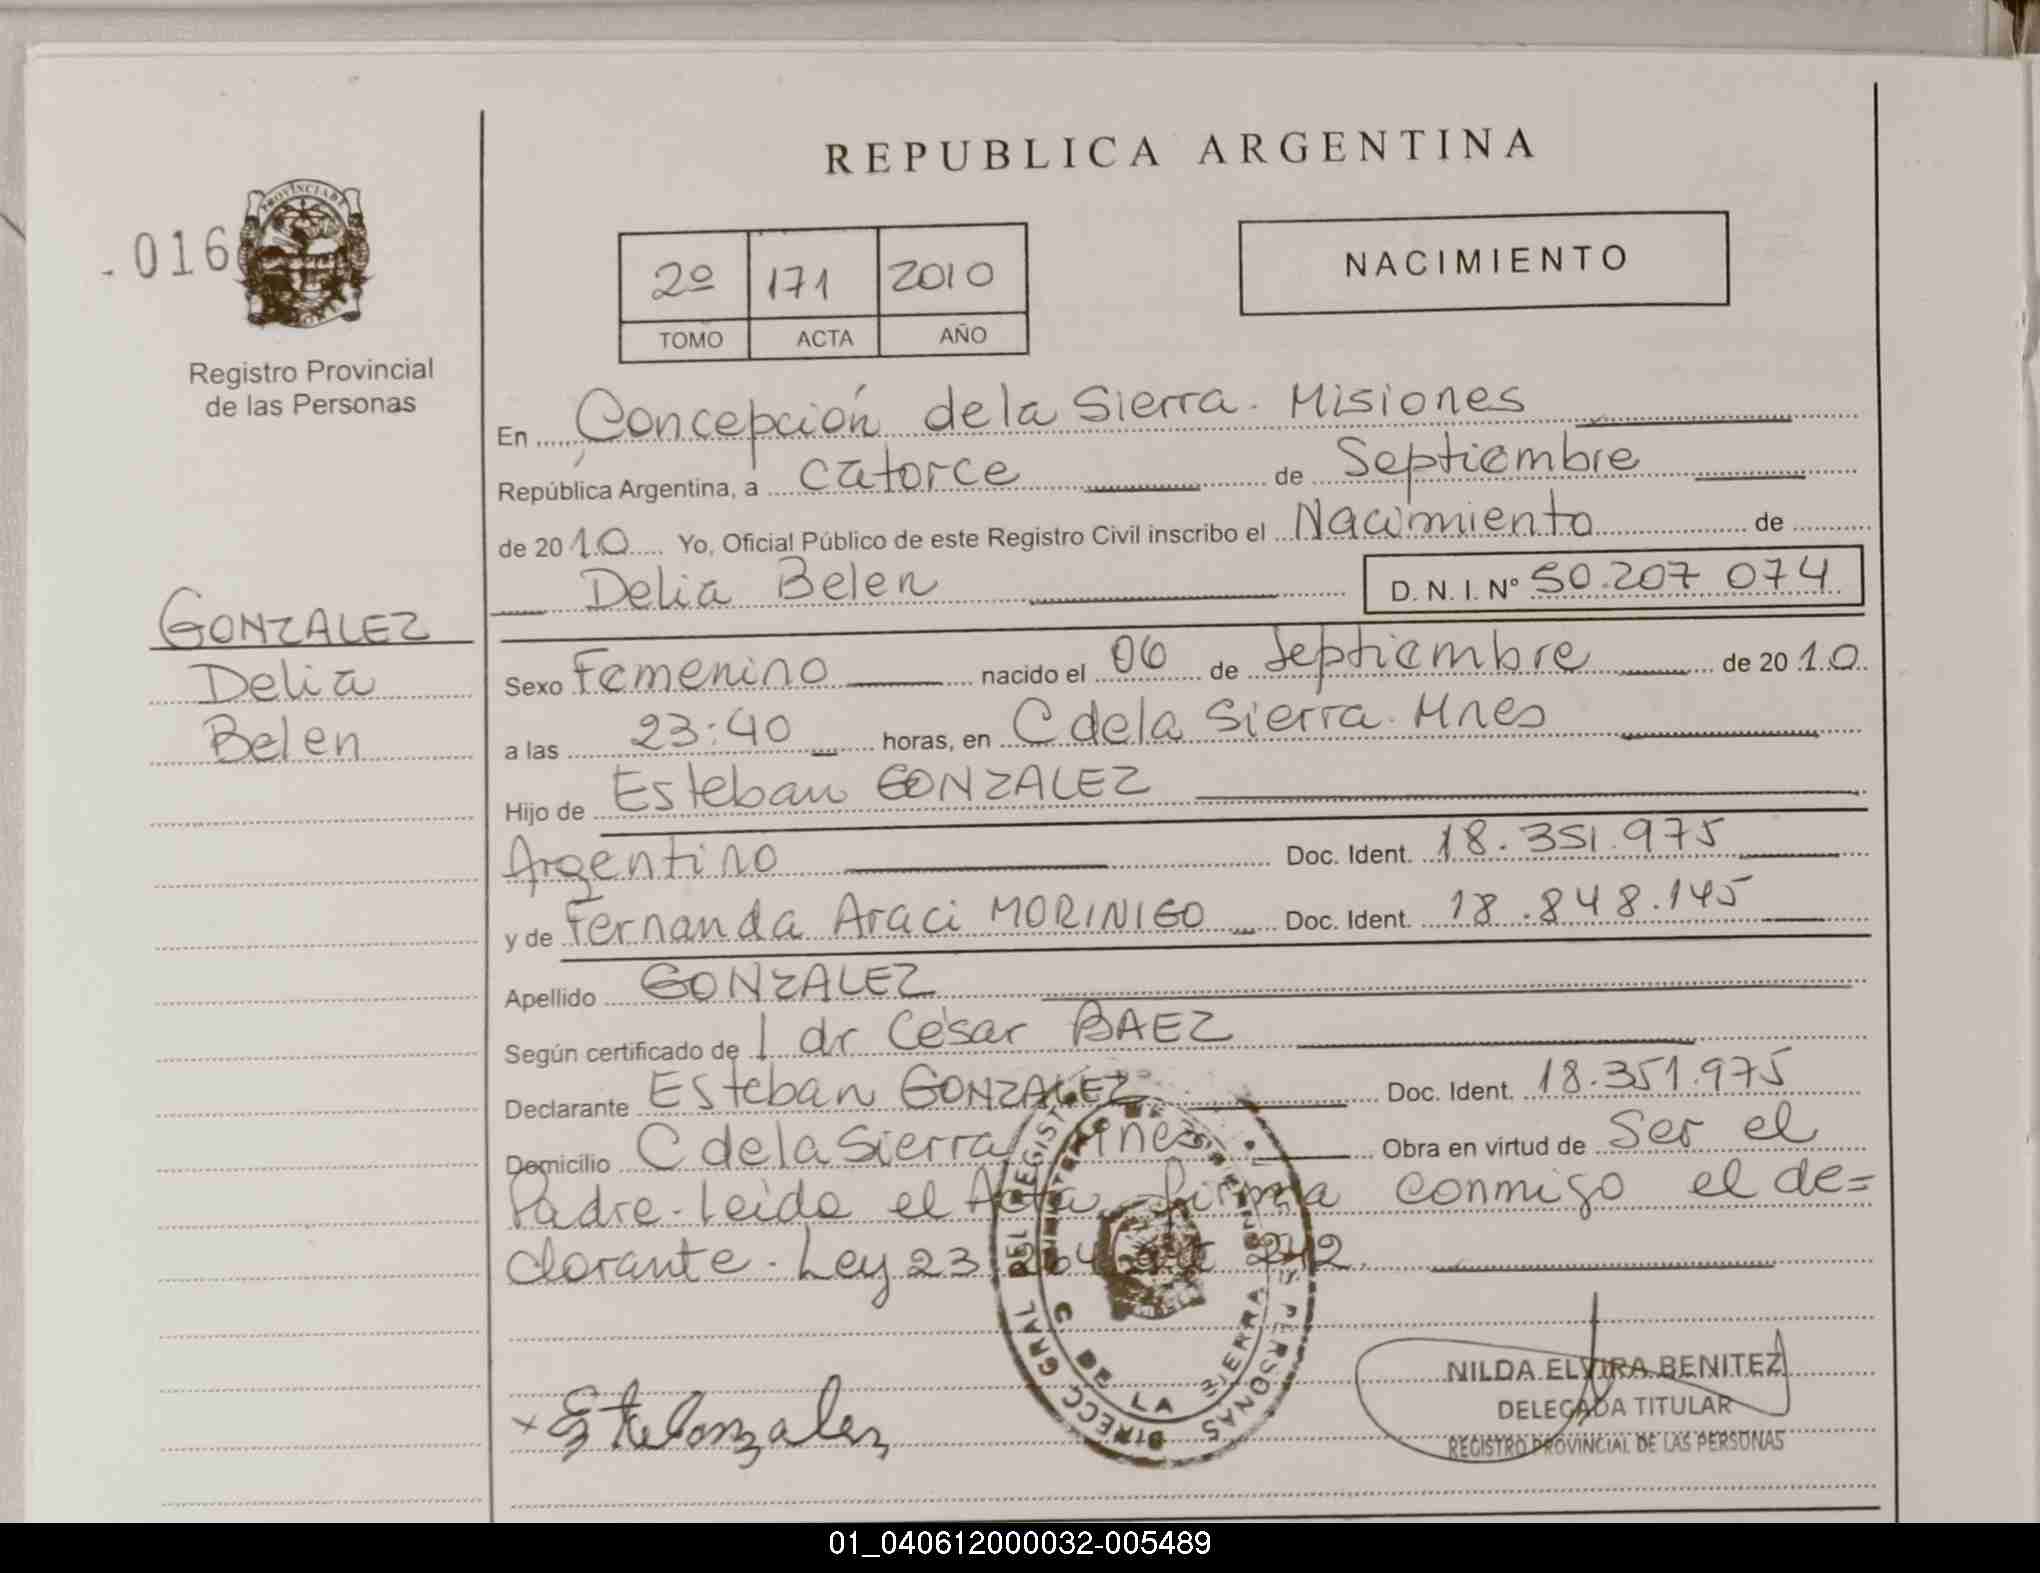 REPUBLICA ARGENTINA
016
PROVINCIA DE
Registro Provincial
de las Personas
2º 171 2010
TOMO ACTA AÑO
NACIMIENTO
En Concepción de la Sierra - Misiones
República Argentina, a catorce de Septiembre
de 2010 Yo, Oficial Público de este Registro Civil inscribo el Nacimiento de
Delia Belen D. N. I. Nº 50.207 074
GONZALEZ
Delia
Belen
Sexo Femenino nacido el 06 de Septiembre de 2010
a las 23:40 horas, en C de la Sierra. Mnes
Hijo de Esteban GONZALEZ
Argentino Doc. Ident. 18.351.975
y de Fernanda Araci MORINIGO Doc. Ident. 18.848.145
Apellido GONZALEZ
Según certificado de l dr César BAEZ
Declarante Esteban GONZALEZ Doc. Ident. 18.351.975
Domicilio C de la Sierra Mnes Obra en virtud de Ser el
Padre - Leida el Acta, firma conmigo el de=
clarante. Ley 23 242.
DIRECC GRAL DEL REGIST PERSONAS
C DE LA SIERRA
x Este Gonzalez
NILDA ELVIRA BENITEZ
DELEGADA TITULAR
REGISTRO PROVINCIAL DE LAS PERSONAS
01_040612000032-005489